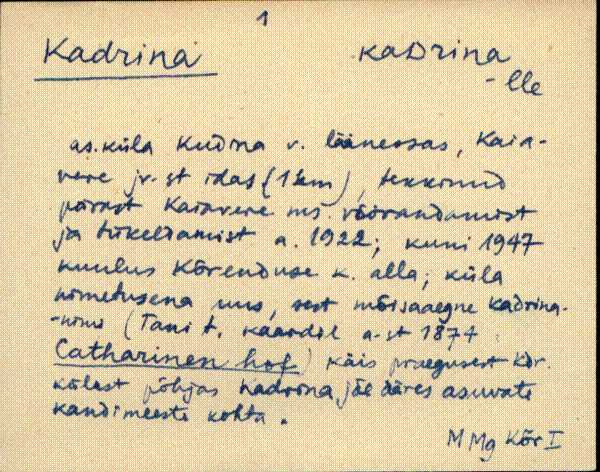 1
Kadrina kaDrina
-lle
as. küla Kudina v. lääneosas, Kaia-
vere jv-st idas (1 km), tekkinud
pärast Kaiavere ms. võõrandamist
ja tükeldamist a. 1922; kuni 1947
kuulus Kõrenduse k. alla; küla
nimetusena uus, sest mõisaaegne Kadrina-
-nimi (Tani t. kaardil a-st 1874
Catharinen hof) käis praegusest Kdr.
külast põhjas Kadrina jõe ääres asuvate
kandimeeste kohta.
M Mg Kõr I